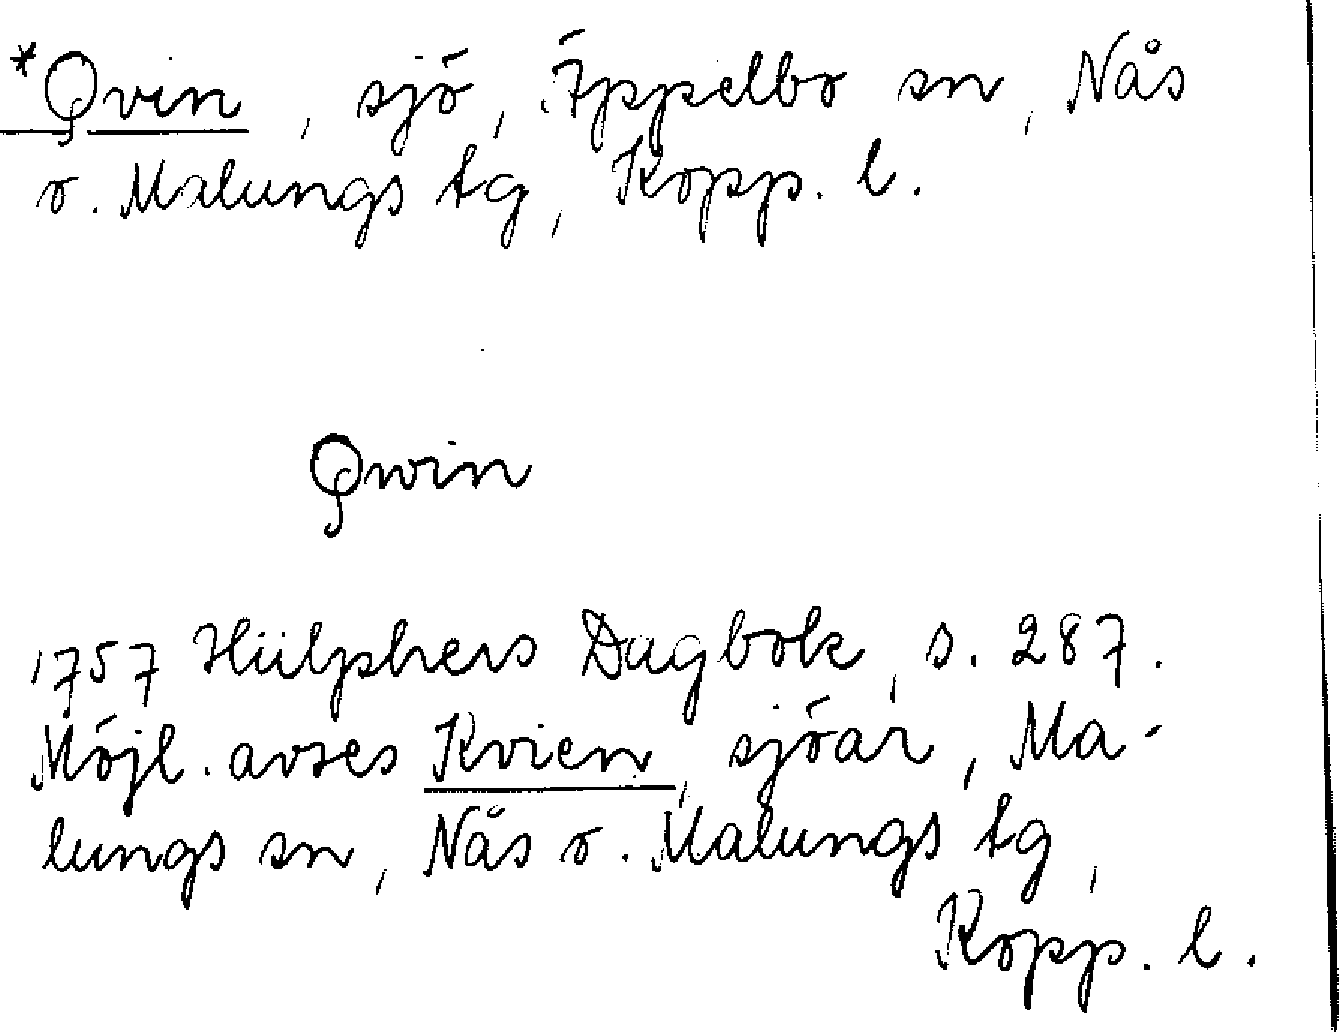 *Qvin, sjö, Äppelbo sn, Nås
o. Malungs tg, Kopp. l.
Qwin
1757 Hülphers Dagbok, s. 287.
Möjl. avses Kvien, sjöar, Ma-
lungs sn, Nås o. Malungs tg,
Kopp. l.